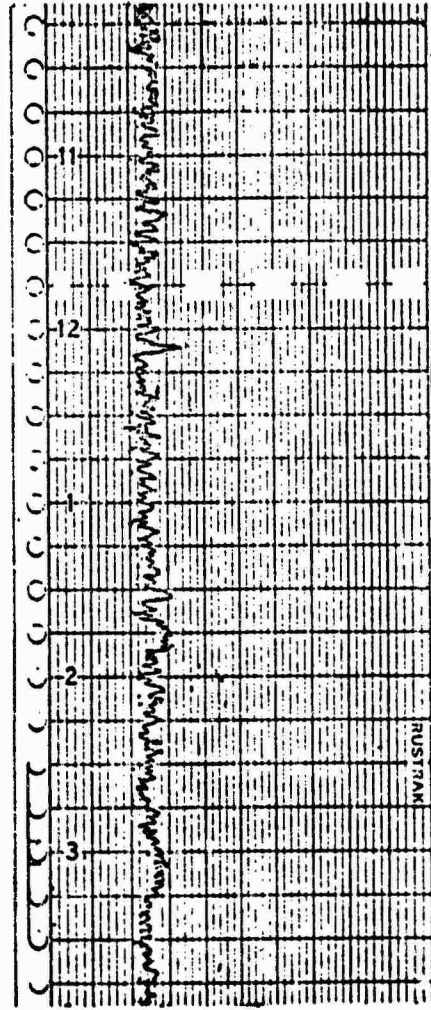 11
12
1
2
RUSTRAK
3